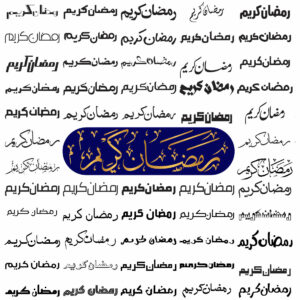 رمضان كريم رمضان كريم رمضان كريم رمضان كريم رمضان كريم
رمضان كريم رمضان كريم رمضان كريم رمضان كريم رمضان كريم
رمضان كريم رمضان كريم رمضان كريم رمضان كريم رمضان كريم
رمضان كريم رمضان كريم رمضان كريم رمضان كريم رمضان كريم
رمضان كريم رمضان كريم رمضان كريم رمضان كريم رمضان كريم
رمضان كريم رمضان كريم رمضان كريم
رمضان كريم رمضان كريم
رمضان كريم رمضان كريم رمضان كريم رمضان كريم رمضان كريم
رمضان كريم رمضان كريم رمضان كريم رمضان كريم رمضان كريم
رمضان كريم رمضان كريم رمضان كريم رمضان كريم رمضان كريم
رمضان كريم رمضان كريم رمضان كريم رمضان كريم رمضان كريم
رمضان كريم رمضان كريم رمضان كريم رمضان كريم رمضان كريم